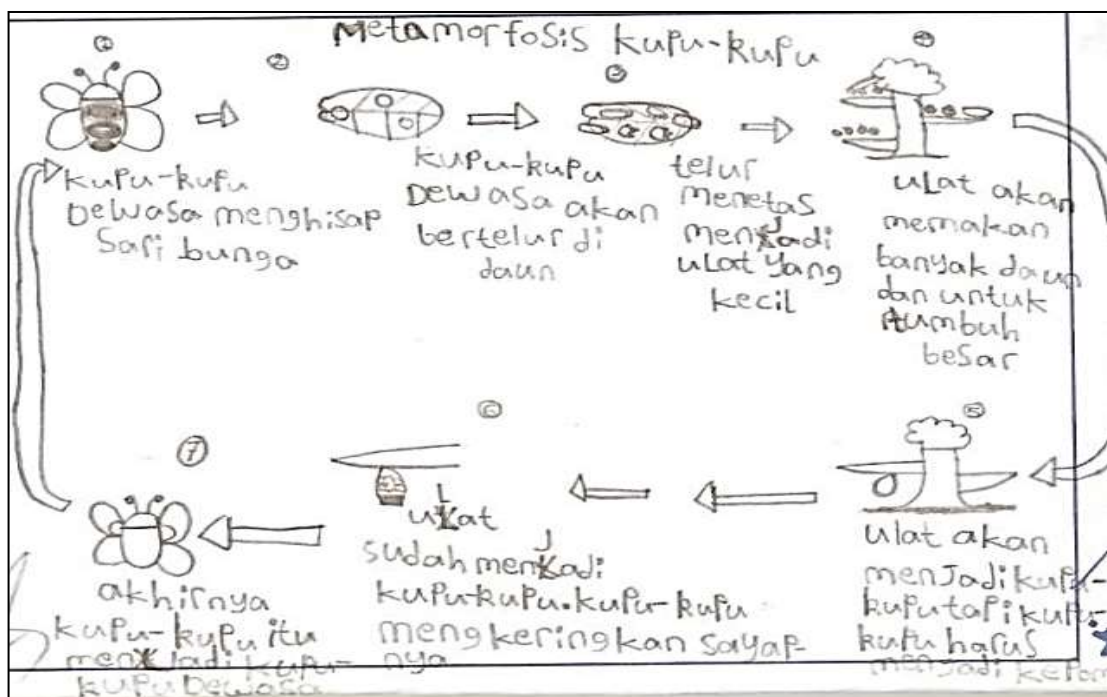 Metamorfosis kupu-kupu
①
kupu-kupu
Dewasa menghisap
Sari bunga
②
kupu-kupu
Dewasa akan
bertelur di
daun
③
telur
menetas
menjadi
ulat yang
kecil
④
ulat akan
memakan
banyak daun
dan untuk
tumbuh
besar
⑤
ulat akan
menjadi kupu-
kupu tapi kupu-
kupu harus
menjadi kepom
⑥
ulat
sudah menjadi
kupu-kupu. kupu-kupu
mengkeringkan sayap-
nya
⑦
akhirnya
kupu-kupu itu
menjadi kupu-
kupu Dewasa